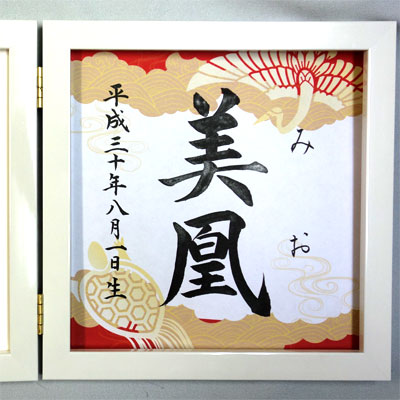 みお
美凰
平成三十年八月一日生